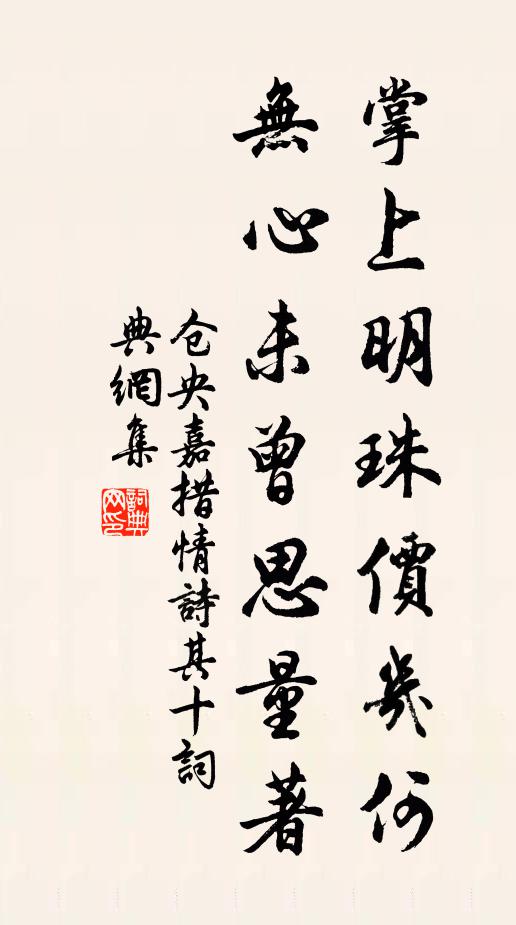 掌上明珠價幾何
無心未曾思量著
仓央嘉措情詩其十詞
典網集
詞典
网印